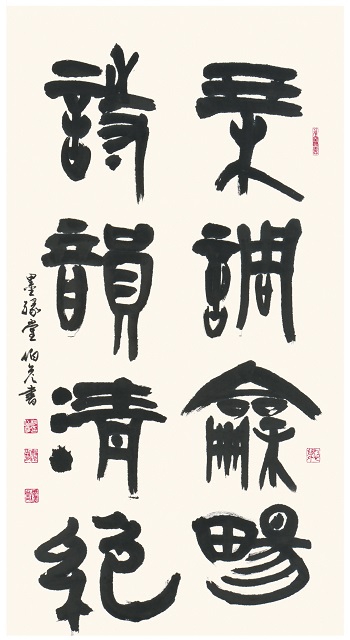 琴調龢暢
詩韻清絕
墨緣堂 伯 書